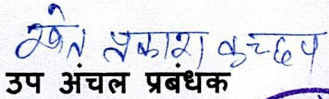 प्रकाश कच्छप
उप अंचल प्रबंधक